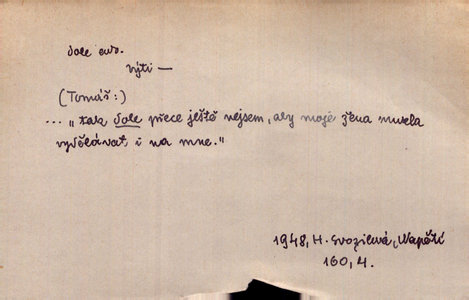 dole adv.
býti —
(Tomáš:)
... „tak dole přece ještě nejsem, aby moje žena musela
vydělávat i na mne."
1948, H. Svozilová, Napětí
160, 4.